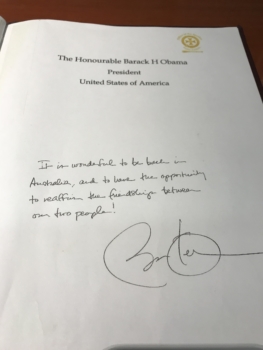 The Honourable Barack H Obama
President
United States of America
It is wonderful to be back in
Australia, and to have the opportunity
to reaffirm the friendship between
our two peoples!